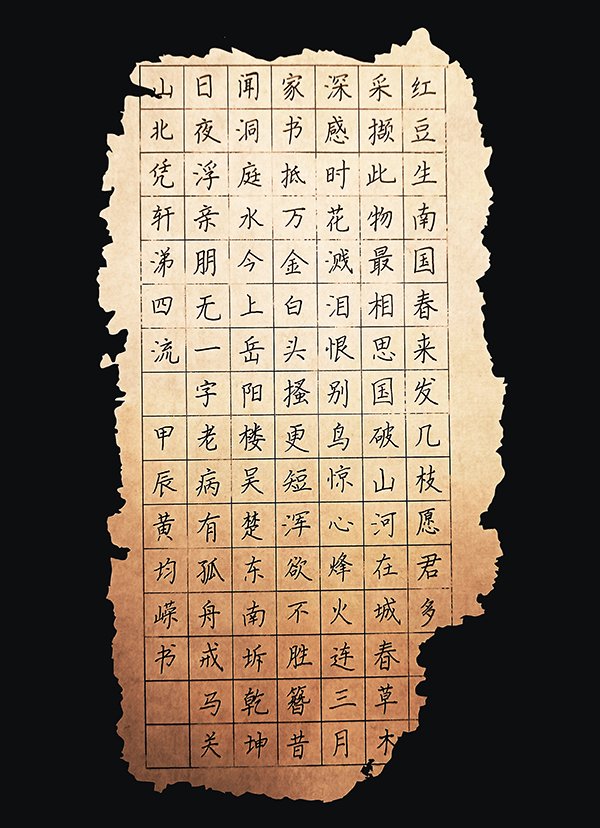 红豆生南国春来发几枝愿君多
采撷此物最相思国破山河在城春草木
深感时花溅泪恨别鸟惊心烽火连三月
家书抵万金白头搔更短浑欲不胜簪昔
闻洞庭水今上岳阳楼吴楚东南坼乾坤
日夜浮亲朋无一字老病有孤舟戎马关
山北凭轩涕四流 甲辰黄均嵘书